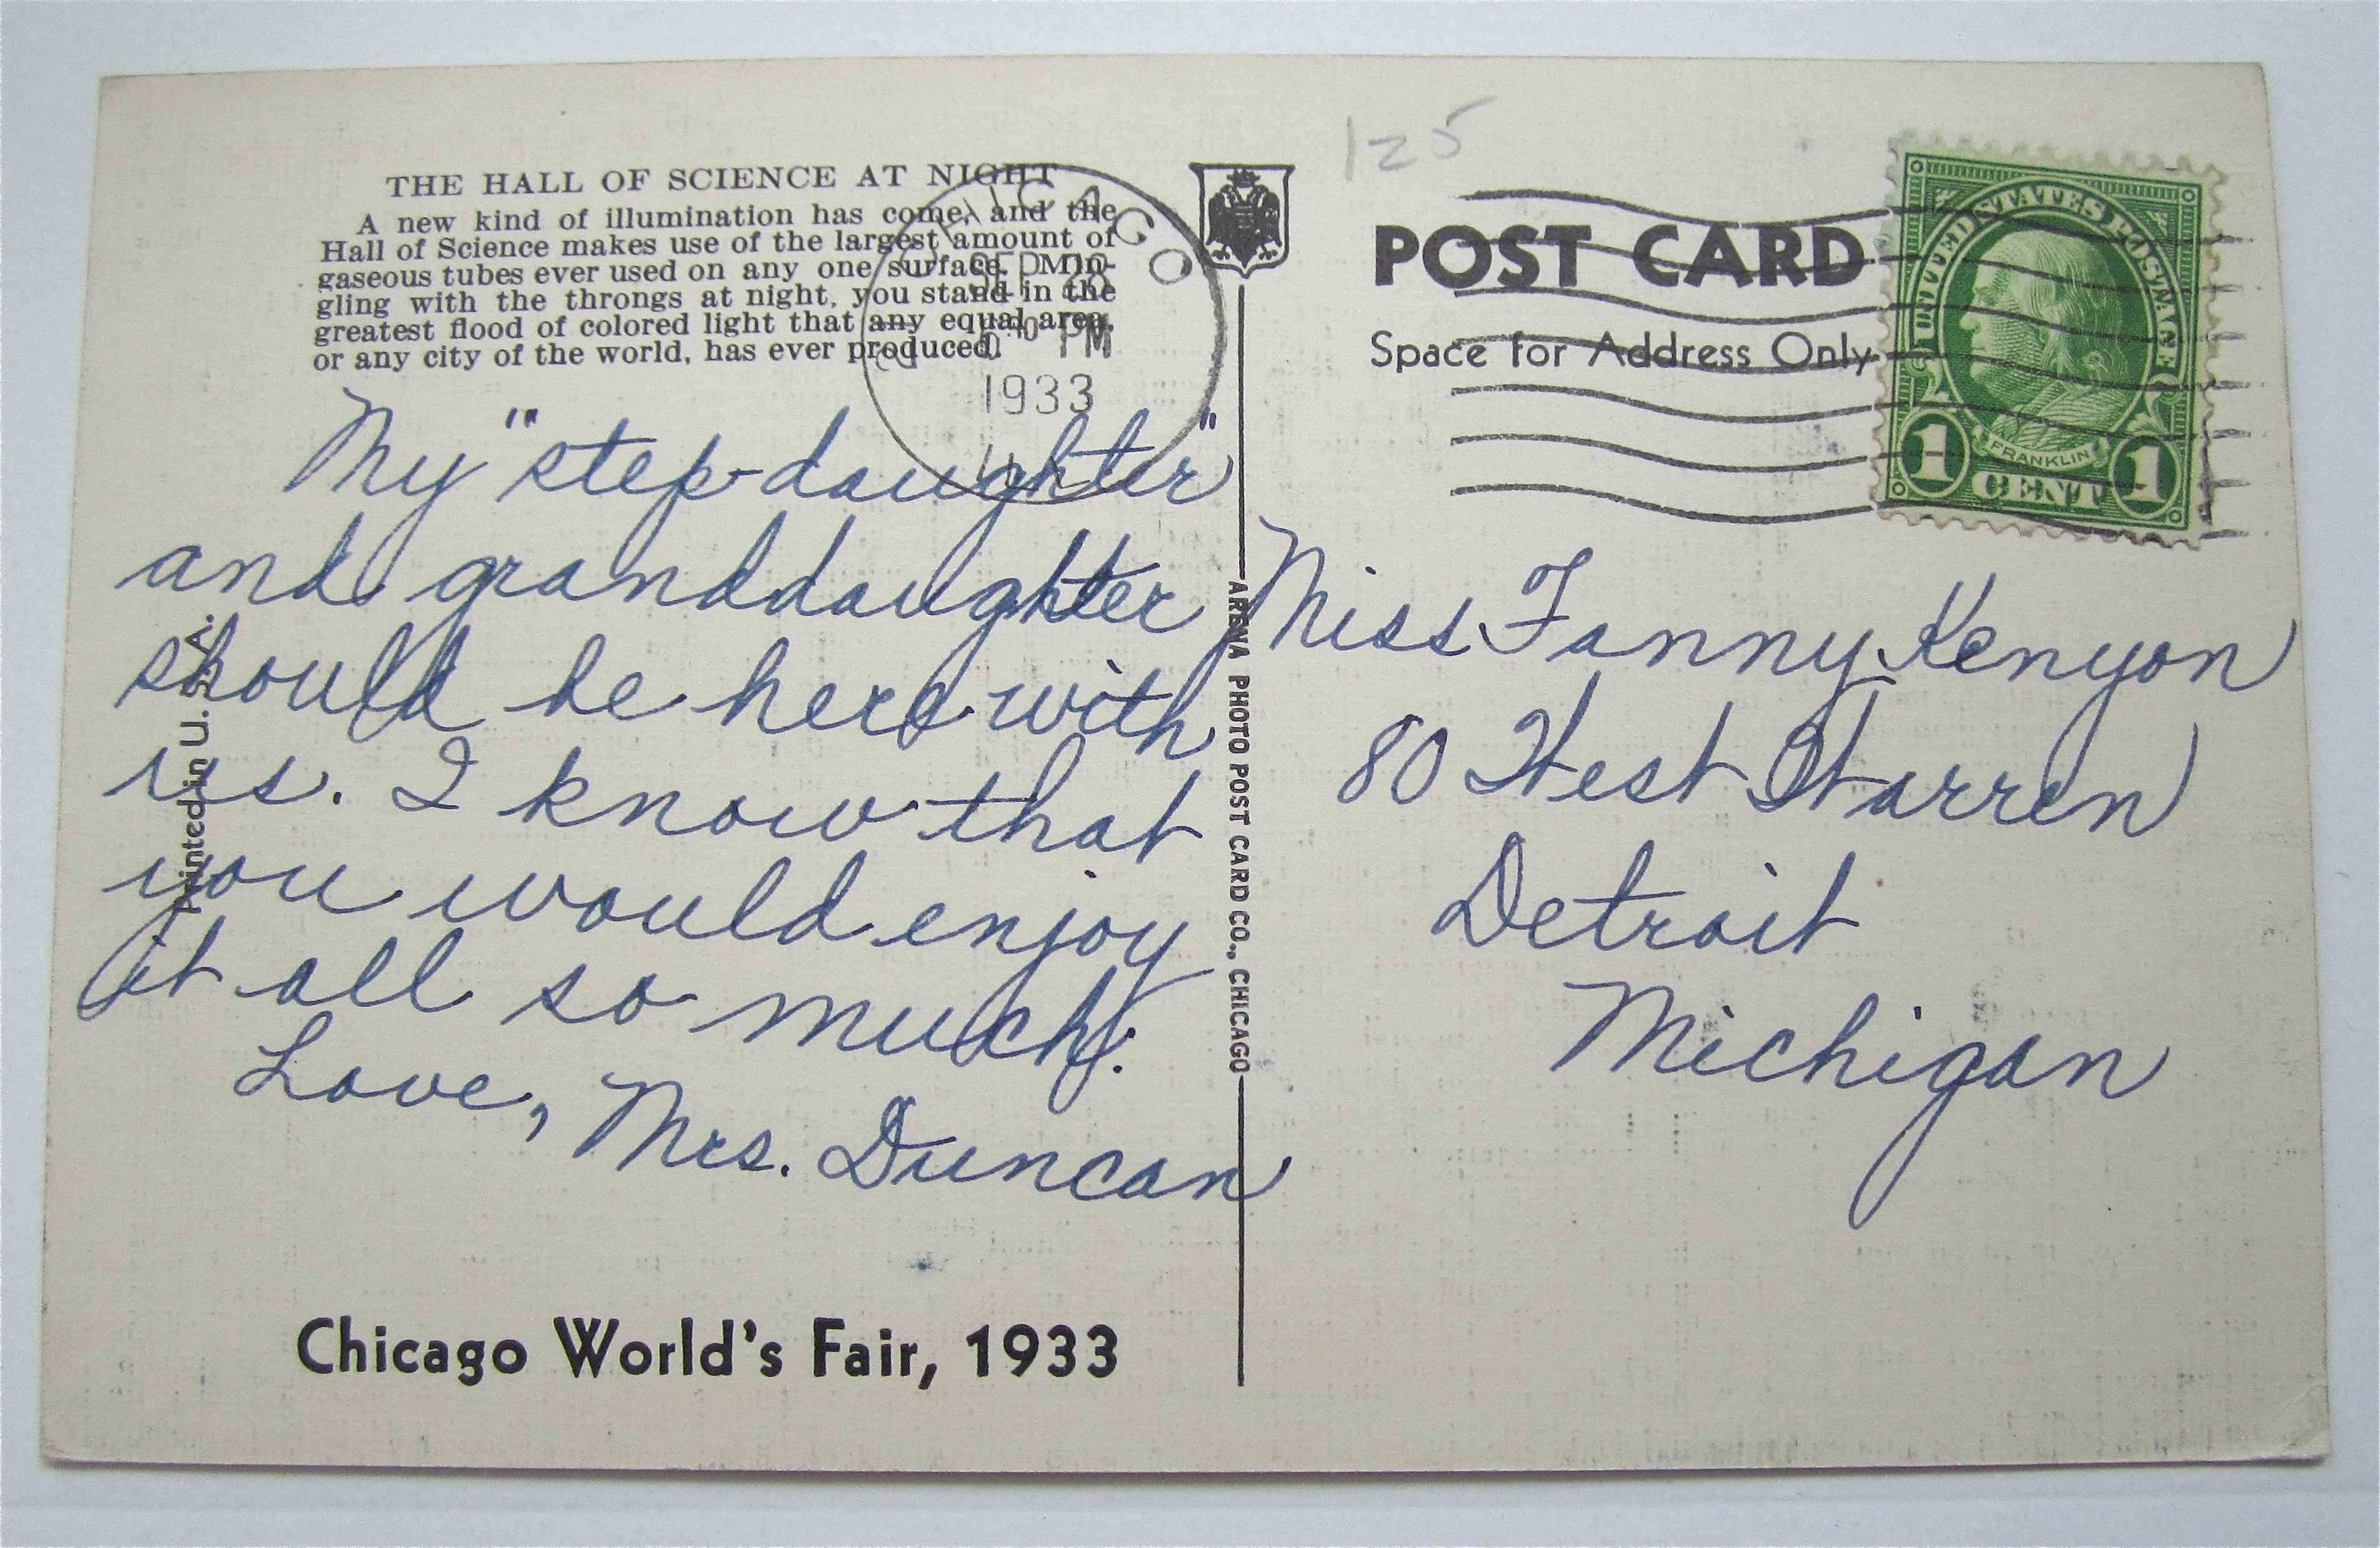 THE HALL OF SCIENCE AT NIGHT
A new kind of illumination has come, and the
Hall of Science makes use of the largest amount of
gaseous tubes ever used on any one surface. Min-
gling with the throngs at night, you stand in the
greatest flood of colored light that any equal area,
or any city of the world, has ever produced.
CHICAGO
SEP 28
PM
1933
My "step-daughter"
and granddaughter
should be here with
us. I know that
you would enjoy
it all so much.
Love, Mrs. Duncan
Chicago World's Fair, 1933
Printed in U. S. A.
ARENA PHOTO POST CARD CO., CHICAGO
125
POST CARD
Space for Address Only
UNITED STATES POSTAGE
FRANKLIN
1 CENT 1
Miss Fanny Kenyon
80 West Warren
Detroit
Michigan